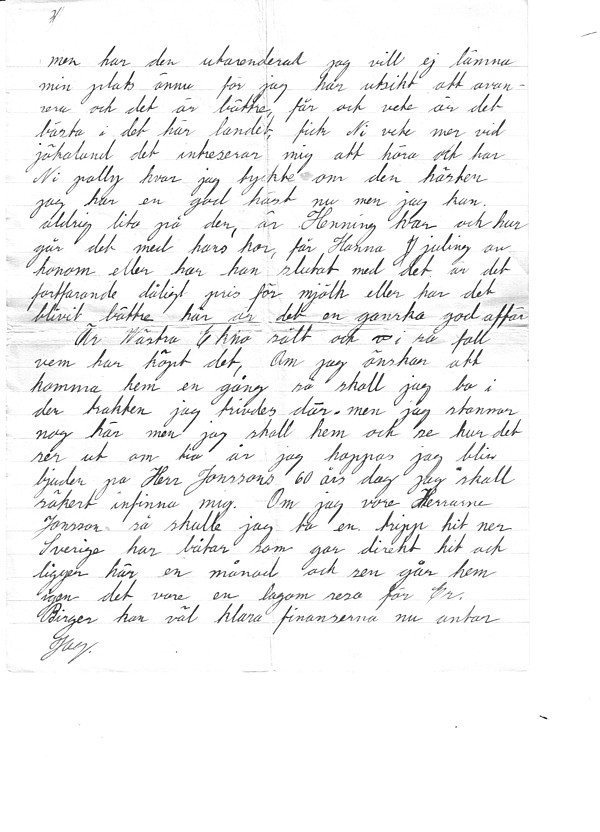 men har den utarenderad jag vill ej lämna
min plats ännu för jag har utsikt att avan-
sera och det är bättre, får och vete är det
bästa i det här landet, fick Ni vete mer vid
det intreserar mig att höra och har
Ni hvar jag tyckte om den hästen
jag har en god häst nu men jag kan
aldrig lita på den, är Henning kvar och hur
går det med hans kor, får Hanna juling av
honom eller har han slutat med det, är det
fortfarande dåligt pris för mjölk eller har det
blivit bättre här är det en ganska god affär
Är Västra Eknö sålt och i så fall
vem har köpt det, Om jag önskar att
komma hem en gång så skall jag bo i
den trakten jag trivdes där. men jag stannar
nog här men jag skall hem och se hur det
ser ut om tio år jag hoppas jag bliv
bjuden på Herr Jonssons 60 års dag jag skall
säkert infinna mig. Om jag vore Herrarne
Jonsson så skulle jag ta en tripp hit ner
Sverige har båtar som går direkt hit och
ligger här en månad och sen går hem
igen det vore en lagom resa för Er.
Birger kan väl klara finanserna nu antar
Jag.